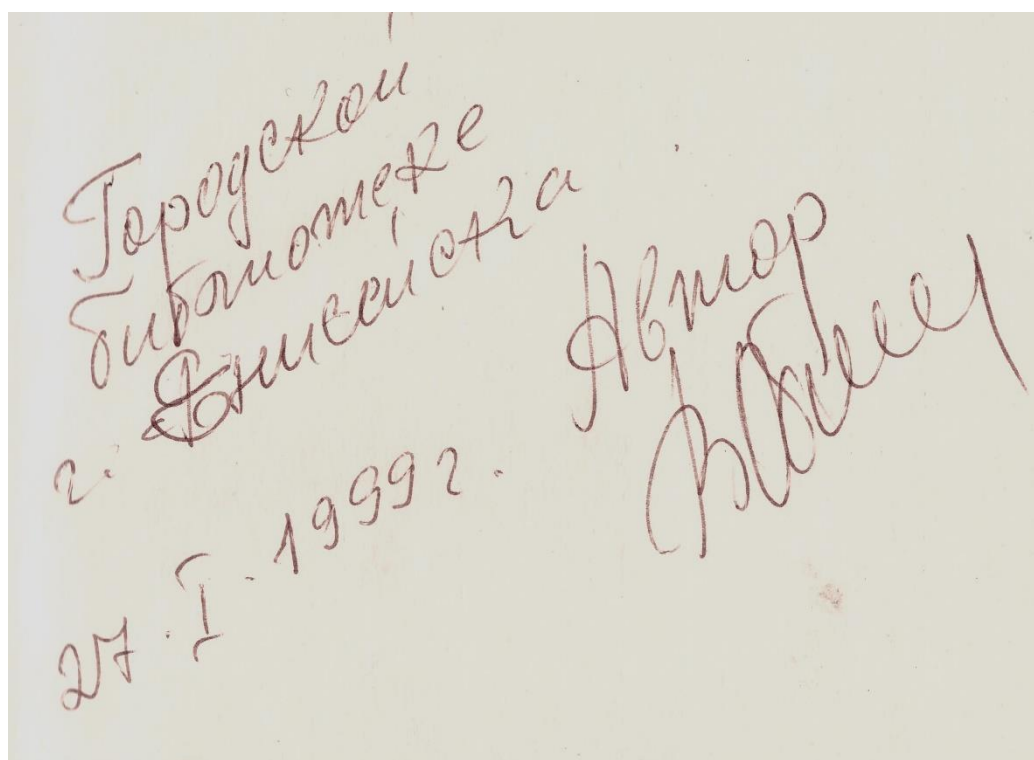 Городской
библиотеке
г. Енисейска
Автор
27.I.1999г.